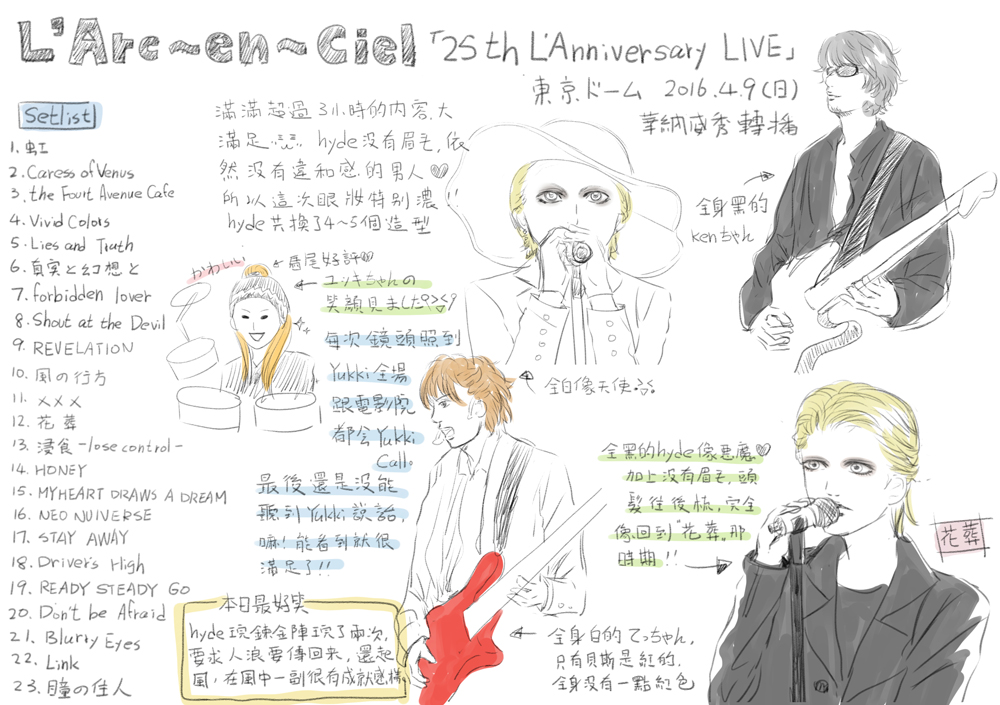 L'Arc~en~Ciel「25th L'Anniversary LIVE」
東京ドーム 2016.4.9(日)
華納威秀轉播
Setlist
1. 虹
2. Caress of Venus
3. the Fourt Avenue Cafe
4. Vivid Colors
5. Lies and Truth
6. 真実と幻想と
7. forbidden lover
8. Shout at the Devil
9. REVELATION
10. 風の行方
11. XXX
12. 花葬
13. 浸食 -lose control-
14. HONEY
15. MY HEART DRAWS A DREAM
16. NEO NUIVERSE
17. STAY AWAY
18. Driver's High
19. READY STEADY GO
20. Don't be Afraid
21. Blurry Eyes
22. Link
23. 瞳の住人
滿滿超過3小時的內容,大
滿足 hyde沒有眉毛,依
然沒有違和感的男人♡
所以這次眼妝特別濃!!
hyde共換了4~5個造型
かわいい
馬尾好評♡
ユッキちゃんの
笑顔見ました
每次鏡頭照到
Yukki全場
跟電影院
都會Yukki
Call。
最後還是沒能
聽到Yukki說話,
嘛!能看到就很
滿足了!!
全白像天使
全身黑的
kenちゃん
全黑的hyde像惡魔♡
加上沒有眉毛,頭
髮往後梳,完全
像回到"花葬"那
時期!!
花葬
本日最好笑
hyde玩鍊金陣玩了兩次,
要求人浪要傳回來,還起
風,在風中一副很有成就感樣。
全身白的てっちゃん,
只有貝斯是紅的,
全身沒有一點紅色